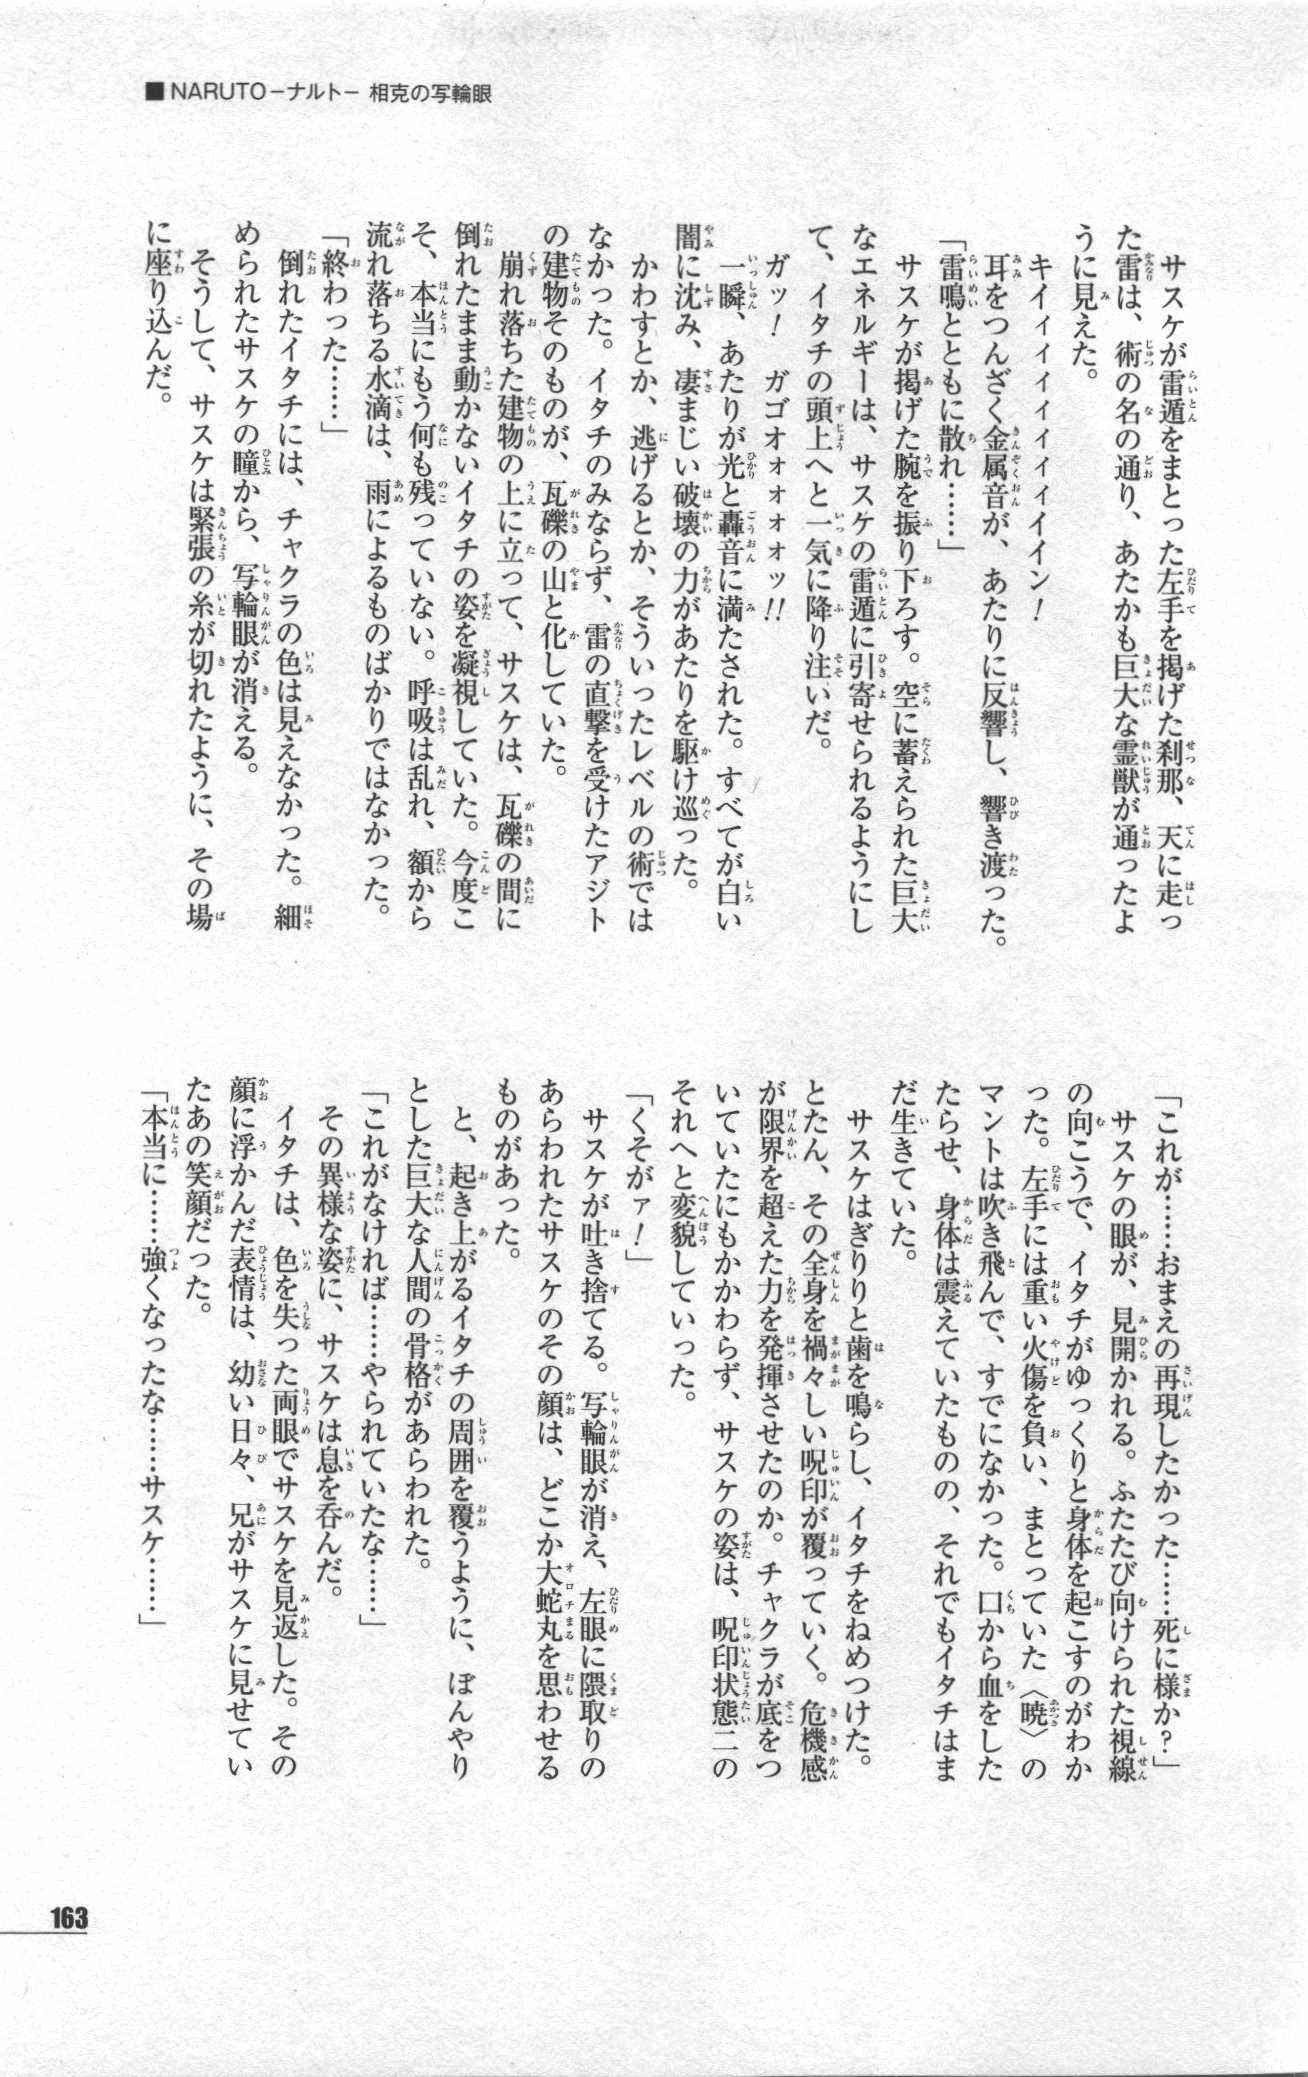 ■NARUTO－ナルト－ 相克の写輪眼
サスケが雷遁をまとった左手を掲げた刹那、天に走っ
た雷は、術の名の通り、あたかも巨大な霊獣が通ったよ
うに見えた。
キイィィィィィィイイン！
耳をつんざく金属音が、あたりに反響し、響き渡った。
「雷鳴とともに散れ……」
サスケが掲げた腕を振り下ろす。空に蓄えられた巨大
なエネルギーは、サスケの雷遁に引寄せられるようにし
て、イタチの頭上へと一気に降り注いだ。
ガッ！ ガゴオォォォォッ!!
一瞬、あたりが光と轟音に満たされた。すべてが白い
闇に沈み、凄まじい破壊の力があたりを駆け巡った。
かわすとか、逃げるとか、そういったレベルの術では
なかった。イタチのみならず、雷の直撃を受けたアジト
の建物そのものが、瓦礫の山と化していた。
崩れ落ちた建物の上に立って、サスケは、瓦礫の間に
倒れたまま動かないイタチの姿を凝視していた。今度こ
そ、本当にもう何も残っていない。呼吸は乱れ、額から
流れ落ちる水滴は、雨によるものばかりではなかった。
「終わった……」
倒れたイタチには、チャクラの色は見えなかった。細
められたサスケの瞳から、写輪眼が消える。
そうして、サスケは緊張の糸が切れたように、その場
に座り込んだ。
「これが……おまえの再現したかった……死に様か？」
サスケの眼が、見開かれる。ふたたび向けられた視線
の向こうで、イタチがゆっくりと身体を起こすのがわか
った。左手には重い火傷を負い、まとっていた〈暁〉の
マントは吹き飛んで、すでになかった。口から血をした
たらせ、身体は震えていたものの、それでもイタチはま
だ生きていた。
サスケはぎりりと歯を鳴らし、イタチをねめつけた。
とたん、その全身を禍々しい呪印が覆っていく。危機感
が限界を超えた力を発揮させたのか。チャクラが底をつ
いていたにもかかわらず、サスケの姿は、呪印状態二の
それへと変貌していった。
「くそがァ！」
サスケが吐き捨てる。写輪眼が消え、左眼に隈取りの
あらわれたサスケのその顔は、どこか大蛇丸を思わせる
ものがあった。
と、起き上がるイタチの周囲を覆うように、ぼんやり
とした巨大な人間の骨格があらわれた。
「これがなければ……やられていたな……」
その異様な姿に、サスケは息を呑んだ。
イタチは、色を失った両眼でサスケを見返した。その
顔に浮かんだ表情は、幼い日々、兄がサスケに見せてい
たあの笑顔だった。
「本当に……強くなったな……サスケ……」
163